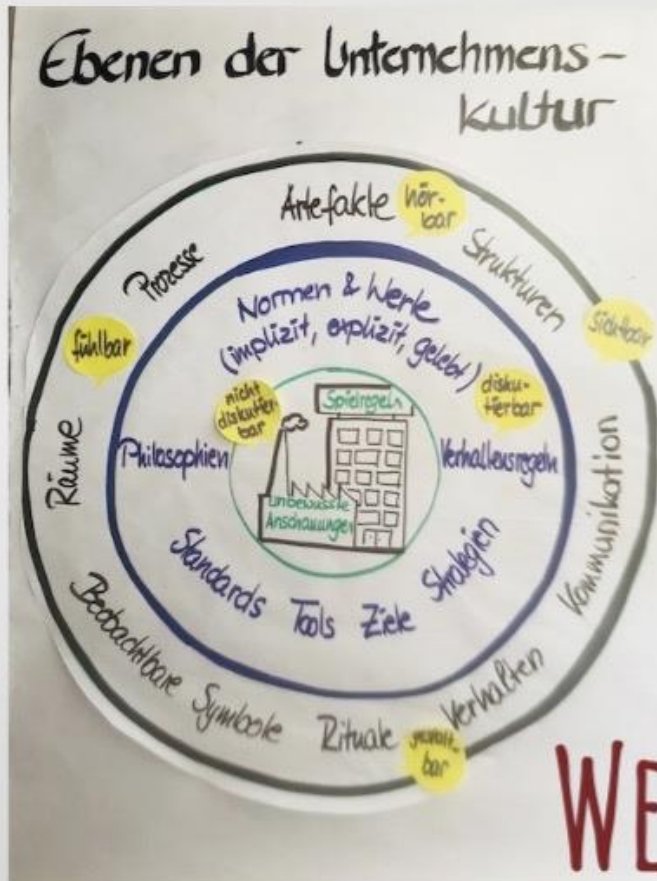 Ebenen der Unternehmens-
kultur
Artefakte
hör-
bar
Strukturen
sichtbar
Kommunikation
Verhalten
Rituale
bar
Symbole
Beobachtbare
Räume
fühlbar
Prozesse
Normen & Werte
(implizit, explizit, gelebt)
disku-
tierbar
Verhaltensregeln
Strategien
Ziele
Tools
Standards
Philosophien
nicht
diskutier
bar
Spielregeln
Unbewusste
Anschauungen
WE